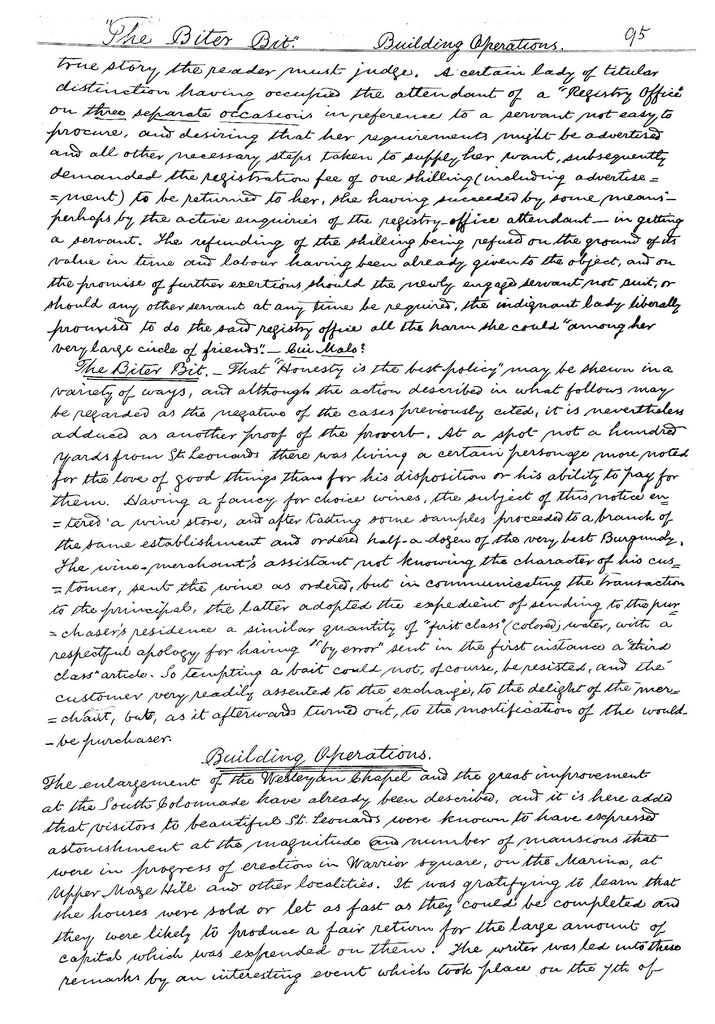 "The Biter Bit." Building Operations. 95
true story, the reader must judge. A certain lady of titular
distinction having occupied the attendant of a "Registry Office"
on three separate occasions in reference to a servant not easy to
procure, and desiring that her requirements might be advertised
and all other necessary steps taken to supply her want, subsequently
demanded the registration fee of one shilling (including advertise=
=ment) to be returned to her, she having succeeded by some means—
perhaps by the active enquiries of the registry-office attendant — in getting
a servant. The refunding of the shilling being refused on the ground of its
value in time and labour having been already given to the object, and on
the promise of further exertions, should the newly engaged servant not suit, or
should any other servant at any time be required, the indignant lady liberally
promised to do the said registry office all the harm she could "among her
very large circle of friends". — Cui Malo?
The Biter Bit. — That "Honesty is the best policy" may be shewn in a
variety of ways, and although the action described in what follows may
be regarded as the negative of the cases previously cited, it is nevertheless
adduced as another proof of the proverb. At a spot not a hundred
yards from St. Leonards there was living a certain personage more noted
for the love of good things than for his disposition or his ability to pay for
them. Having a fancy for choice wines, the subject of this notice en=
=tered a wine store, and after tasting some samples proceeded to a branch of
the same establishment and ordered half-a-dozen of the very best Burgundy.
The wine-merchant's assistant not knowing the character of his cus=
=tomer, sent the wine as ordered, but in communicating the transaction
to the principal, the latter adopted the expedient of sending to the pur=
=chaser's residence a similar quantity of "first class" (colored) water, with a
respectful apology for having "by error" sent in the first instance a "third
class" article. So tempting a bait could not, of course, be resisted, and the
customer very readily assented to the exchange, to the delight of the mer=
=chant, but, as it afterwards turned out, to the mortification of the would-
-be purchaser.
Building Operations.
The enlargement of the Wesleyan Chapel and the great improvement
at the South Colonnade have already been described, and it is here added
that visitors to beautiful St. Leonards were known to have expressed
astonishment at the magnitude and number of mansions that
were in progress of erection in Warrior square, on the Marina, at
Upper Maze Hill and other localities. It was gratifying to learn that
the houses were sold or let as fast as they could be completed and
they were likely to produce a fair return for the large amount of
capital which was expended on them. The writer was led into these
remarks by an interesting event which took place on the 7th of